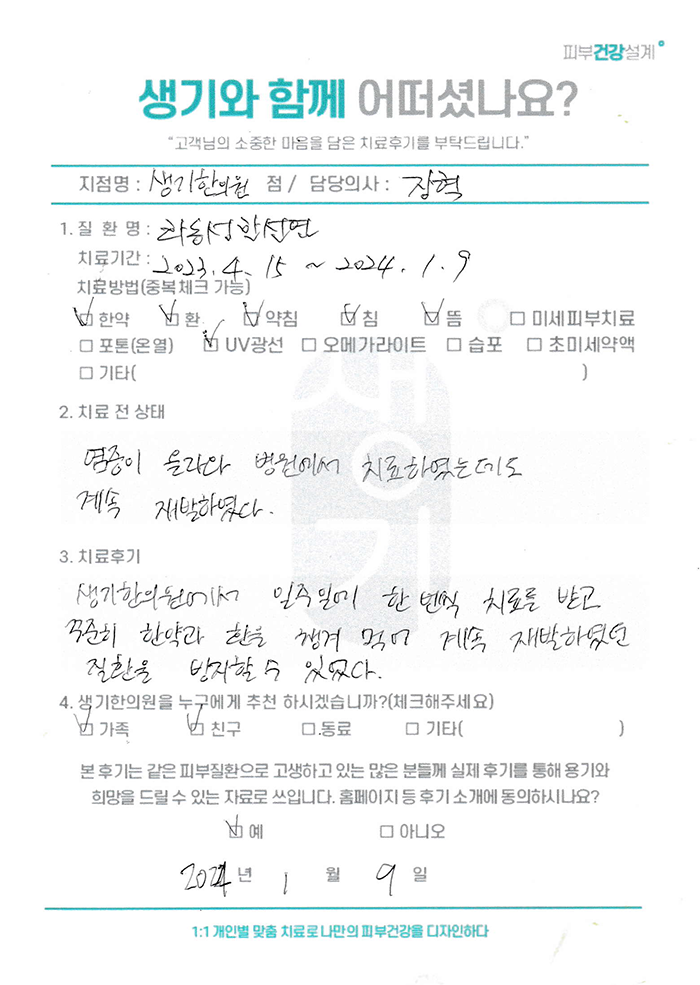 피부건강설계
생기와 함께 어떠셨나요?
"고객님의 소중한 마음을 담은 치료후기를 부탁드립니다."
지점명 : 생기한의원 점 / 담당의사 : 장혁
1. 질 환 명 : 화농성한선염
치료기간 : 2023. 4. 15 ~ 2024. 1. 9
치료방법(중복체크 가능)
☑ 한약 ☑ 환 ☑ 약침 ☑ 침 ☑ 뜸 □ 미세피부치료
□ 포톤(온열) ☑ UV광선 □ 오메가라이트 □ 습포 □ 초미세약액
□ 기타( )
생기
2. 치료 전 상태
염증이 올라와 병원에서 치료하였는데도
계속 재발하였다.
3. 치료후기
생기한의원에서 일주일에 한 번씩 치료를 받고
꾸준히 한약과 환을 챙겨 먹어 계속 재발하였던
질환을 방지할 수 있었다.
4. 생기한의원을 누구에게 추천 하시겠습니까?(체크해주세요)
☑ 가족 ☑ 친구 □ 동료 □ 기타( )
본 후기는 같은 피부질환으로 고생하고 있는 많은 분들께 실제 후기를 통해 용기와
희망을 드릴 수 있는 자료로 쓰입니다. 홈페이지 등 후기 소개에 동의하시나요?
☑ 예 □ 아니오
2024 년 1 월 9 일
1:1 개인별 맞춤 치료로 나만의 피부건강을 디자인하다